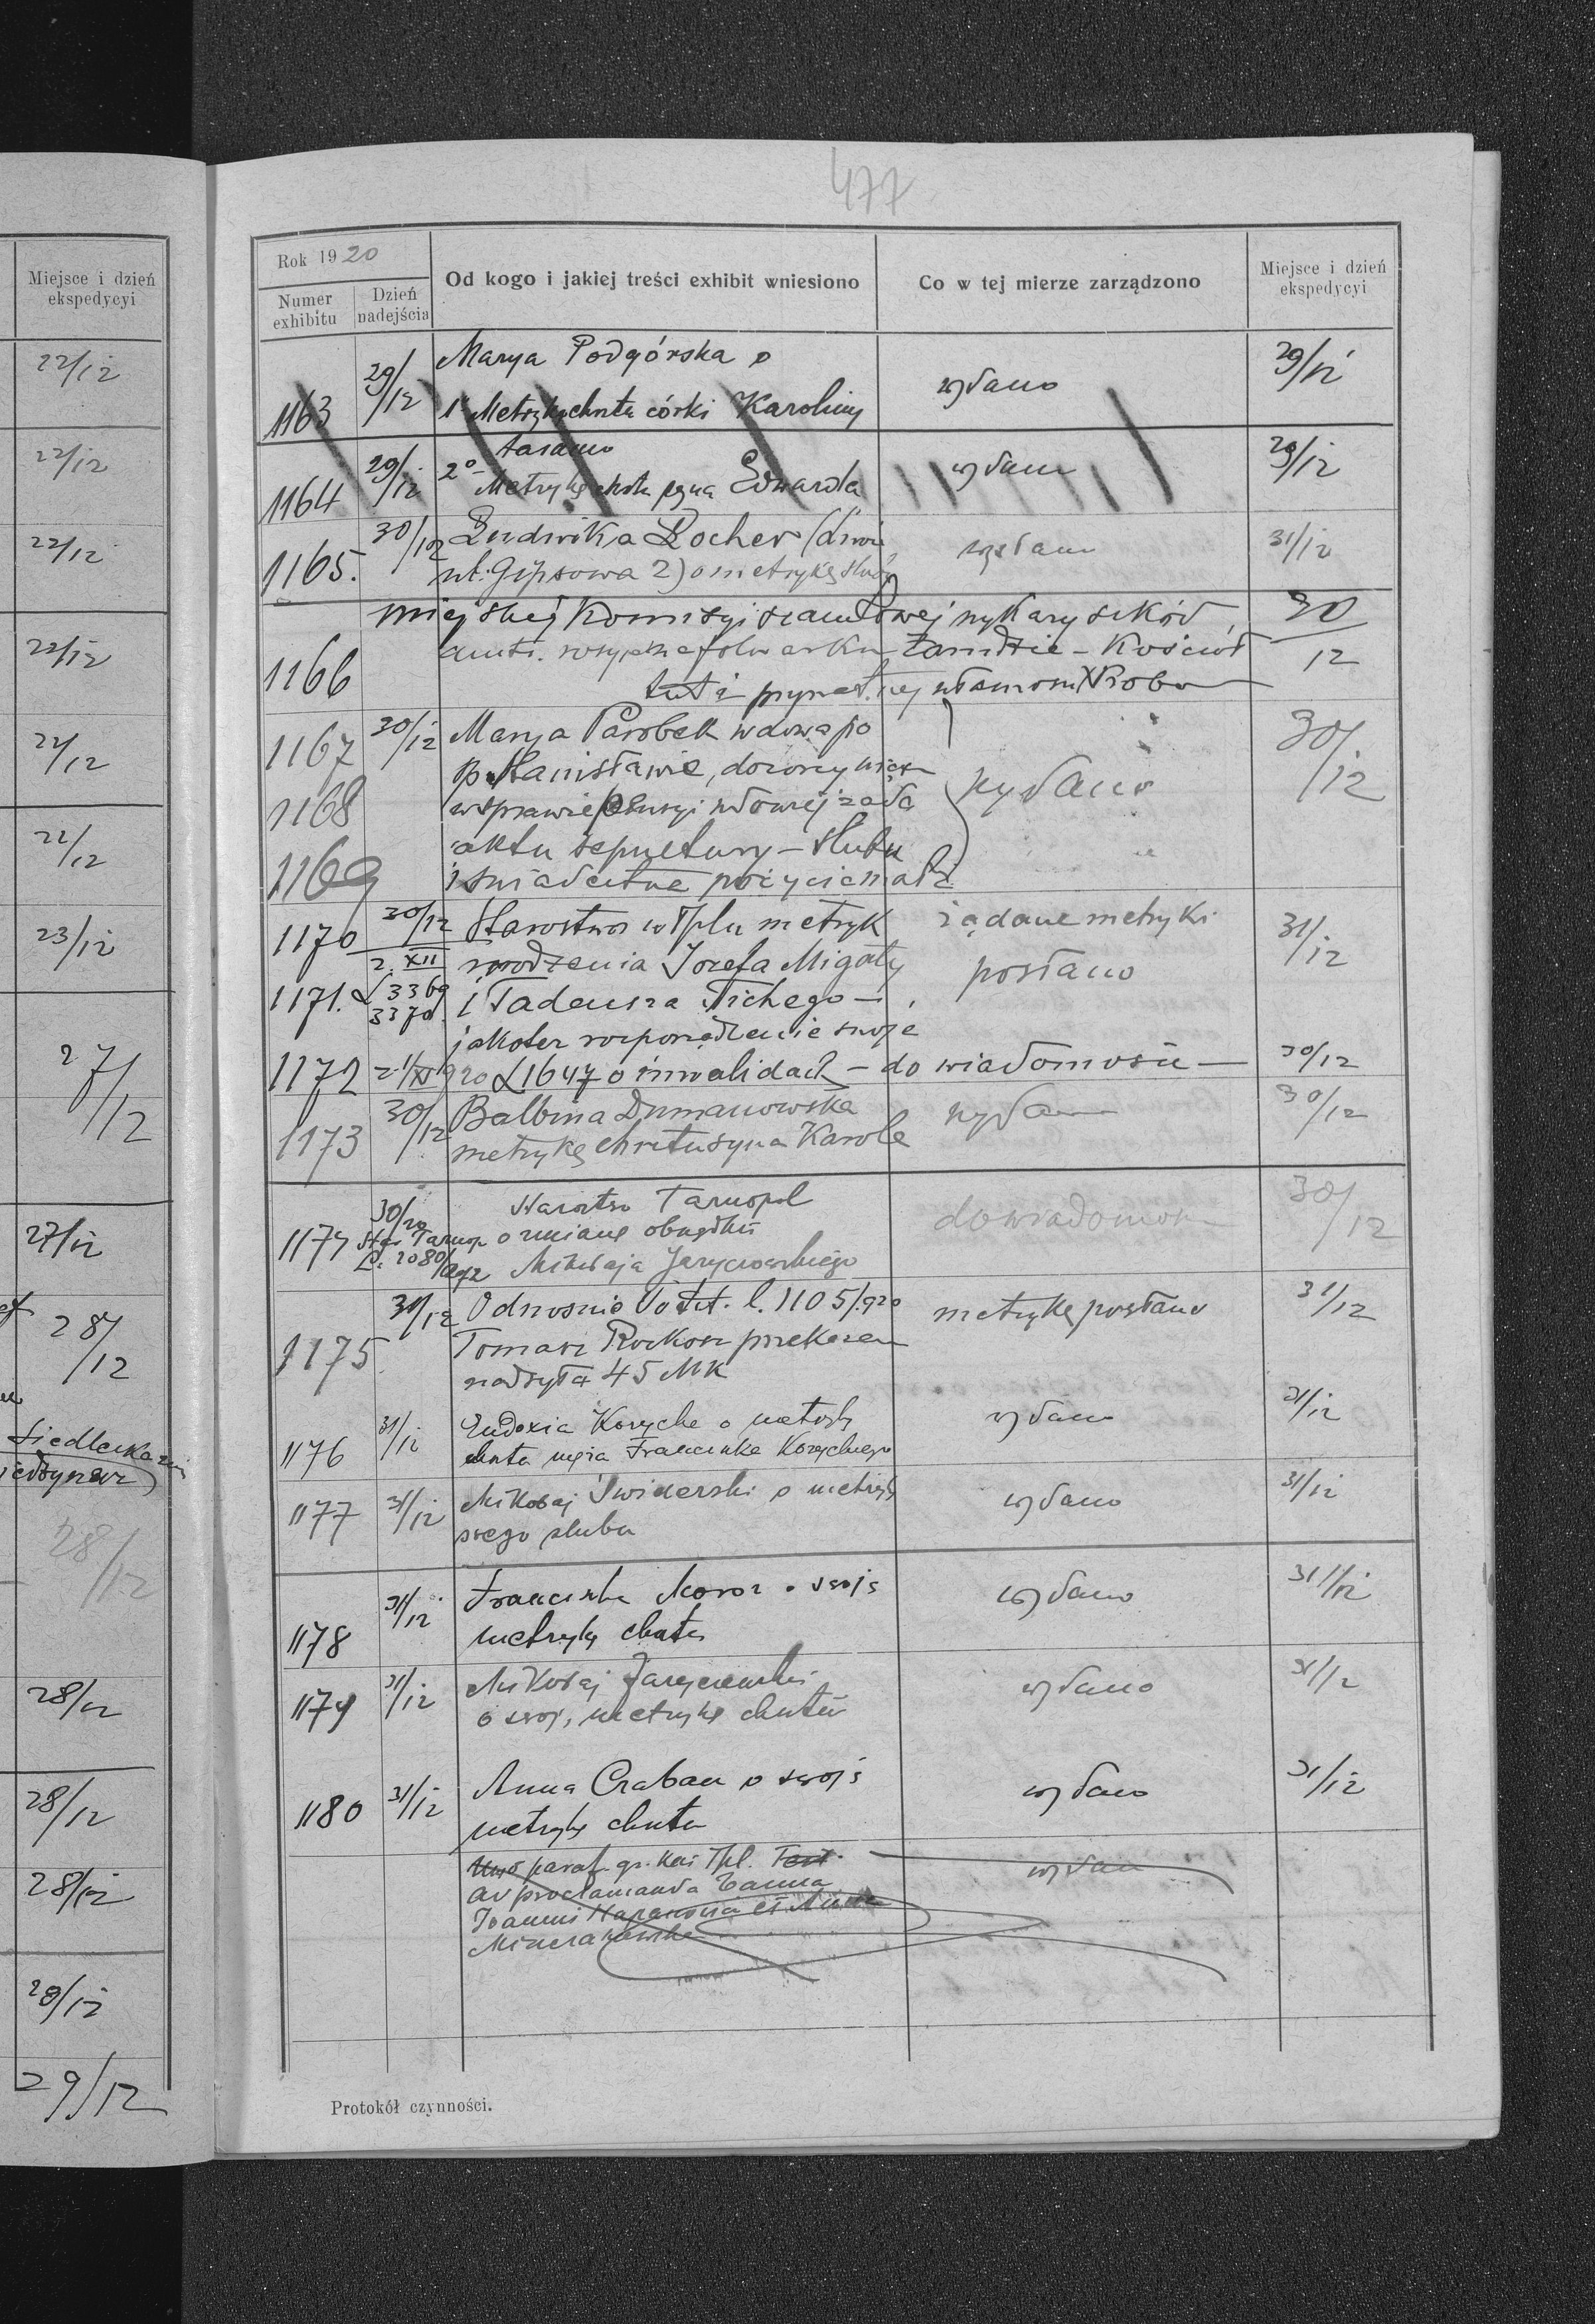 477
Miejsce i dzień
ekspedycyi
22/12
22/12
22/12
22/12
22/12
22/12
23/12
27/12
27/12
28/12
Siedlecka
28/12
28/12
28/12
28/12
28/12
29/12
Rok 1920
Numer exhibitu
Dzień nadejścia
Od kogo i jakiej treści exhibit wniesiono
Co w tej mierze zarządzono
Miejsce i dzień ekspedycyi
1163 29/12 Marya Podgórska o
1º Metrykę chrztu córki Karoliny wydano 29/12
1164 29/12 2º
Metrykę chrztu syna Edwarda wydano 29/12
1165. 30/12 Ludwika Locher
ul. Gipsowa 2) o metrykę ślubu wydano 31/12
miejskiej Komisyi wykazy szkód 30/12
1166 folwarku Zarudzie - Kościół
tut i prywatnej własności X Prob
1167 30/12 Marya Parobek wdowa po
śp. Stanisławie, dozorcy więz
1168 w sprawie pensyi wdowiej żąda wydano 30/12
aktu sepultury - ślubu
1169 i świadectwa pożycia małż
1170 30/12 Starostwo w Tplu metryk żądane metryki 31/12
2.XII urodzenia Józefa Migały posłano
1171. L 3369 i Tadeusza Tichego -
3370
jakoteż rozporządzenie swoje
1172 z 1/XI 920 L 1647 o inwalidach - do wiadomości - 30/12
1173 30/12 Balbina Dumanowska wydano 30/12
metrykę chrztu syna Karola
1174 30/20 Starostwo Tarnopol do wiadomości 30/12
Tarnop. o zmianę obrządku
L. 2080/ Mikołaja Jaryczowskiego
1175 31/12 Odnośnie do tut. l. 1105/920 metrykę posłano 31/12
Tomasz Rokosz przekazem
nadsyła 45 MK
1176 31/12 Eudoxia Korycka o metrykę wydano 31/12
chrztu męża Franciszka
1177 31/12 Mikołaj Świderski o metrykę wydano 31/12
swego ślubu
1178 31/12 Franciszka Moroz o swoją wydano 31/12
metrykę chrztu
1179 31/12 Mikołaj Jaryczowski wydano 31/12
o swoją metrykę chrztu
1180 31/12 Anna Craban o swoją wydano 31/12
metrykę chrztu
paraf. gr. kat Tpl. wydano
ad proclamanda banna
Joanni et Anna
Protokół czynności.